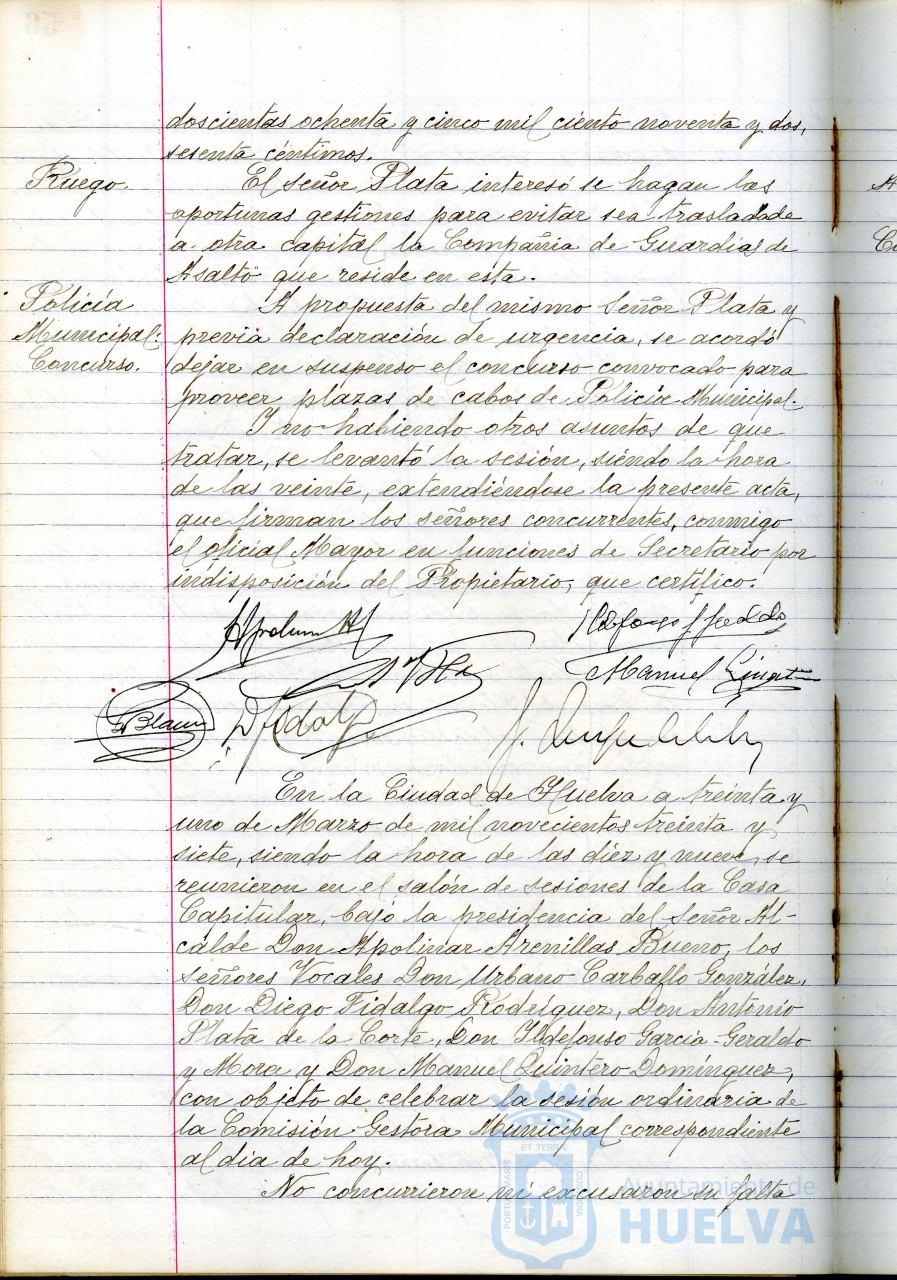 doscientas ochenta y cinco mil ciento noventa y dos,
sesenta céntimos.
Ruego.
El señor Plata interesó se hagan las
oportunas gestiones para evitar sea trasladada
a otra capital la Compañia de Guardias de
Asalto que reside en esta.
Policía
Municipal:
Concurso.
A propuesta del mismo Señor Plata y
previa declaración de urgencia, se acordó
dejar en suspenso el concurso convocado para
proveer plazas de cabos de Policía Municipal.
Y no habiendo otros asuntos de que
tratar, se levantó la sesión, siendo la hora
de las veinte, extendiéndose la presente acta,
que firman los señores concurrentes, conmigo
el oficial Mayor en funciones de Secretario por
indisposición del Propietario, que certifico.
Manuel
En la Ciudad de Huelva a treinta y
uno de Marzo de mil novecientos treinta y
siete, siendo la hora de las diez y nueve, se
reunieron en el salón de sesiones de la Casa
Capitular, bajo la presidencia del Señor Al-
calde Don Apolinar Arenillas Bueno, los
señores Vocales Don Urbano Carballo González,
Don Diego Fidalgo Rodríguez, Don Antonio
Plata de la Corte, Don Ildefonso García-Geraldo
y Mora y Don Manuel Quintero Domínguez,
con objeto de celebrar la sesión ordinaria de
la Comisión Gestora Municipal correspondiente
al dia de hoy.
No concurrieron ni excusaron su falta
Ayuntamiento de
HUELVA